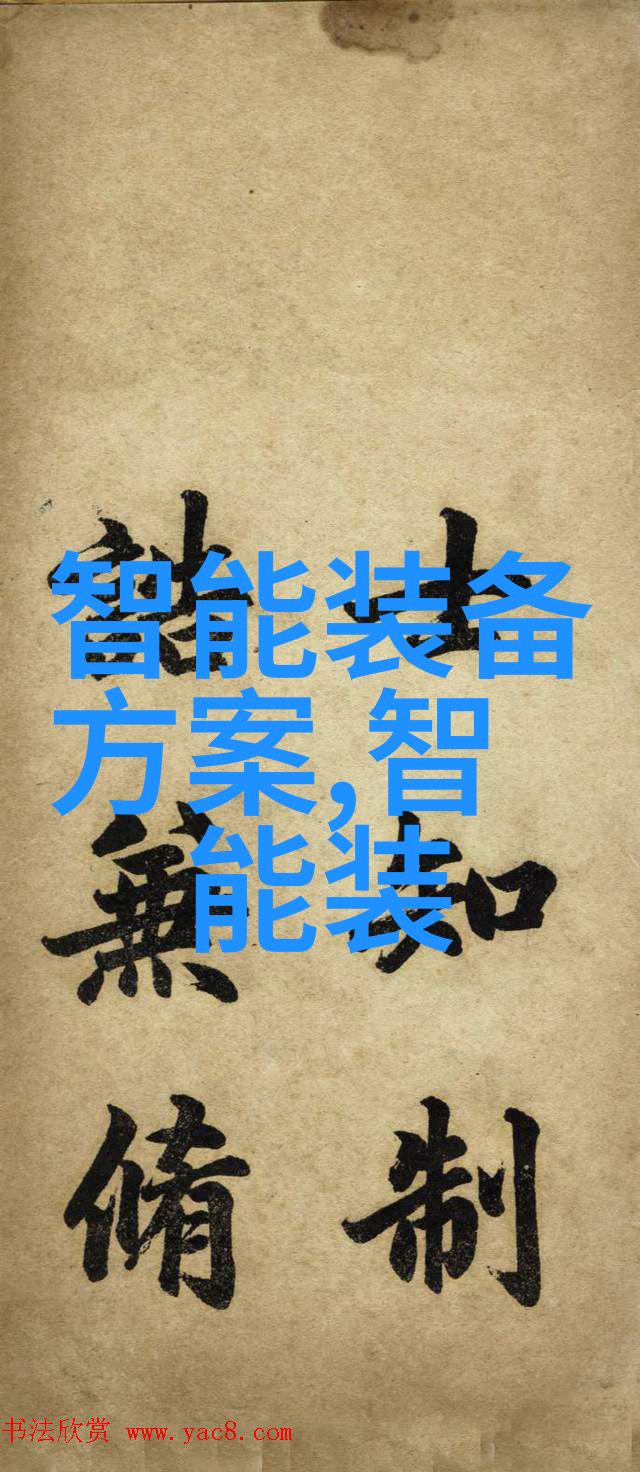 智能装备
方案,智
能装
士知制
誥兼脩
书法欣赏 www.yac8.com